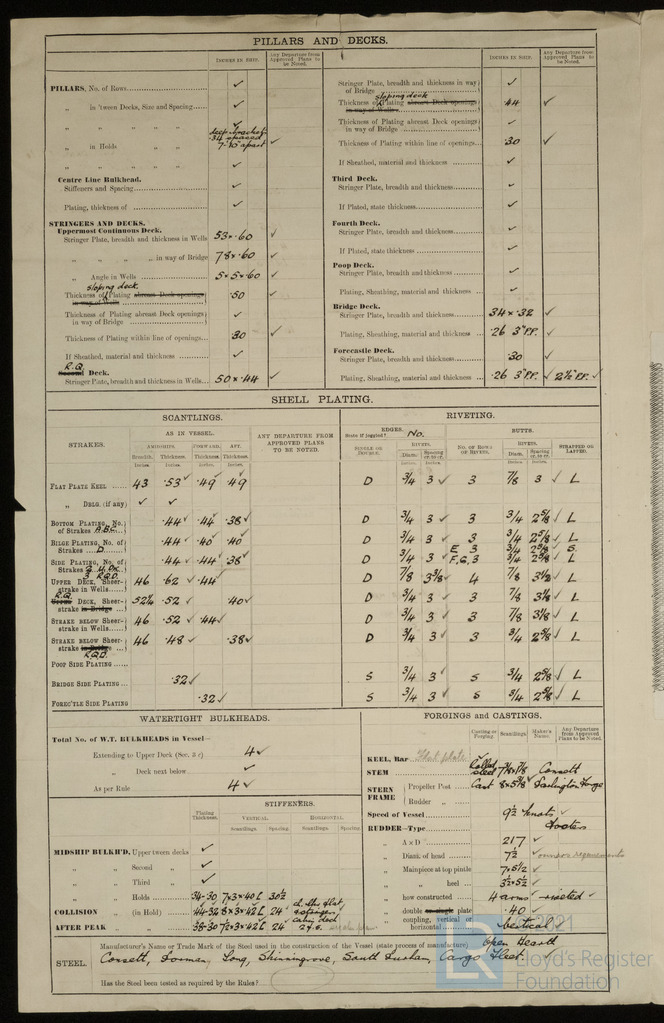 PILLARS AND DECKS.
INCHES IN SHIP.
Any Departure from Approved Plans to be Noted.
PILLARS, No. of Rows ✓
„ in 'tween Decks, Size and Spacing ✓
„ „ „ „ ✓
„ in Holds „ „ 7-10 apart ✓
„ „ „ „ ✓
Centre Line Bulkhead.
Stiffeners and Spacing ✓
Plating, thickness of ✓
STRINGERS AND DECKS.
Uppermost Continuous Deck.
Stringer Plate, breadth and thickness in Wells 53 × .60 ✓
„ „ „ in way of Bridge 78 × .60
„ Angle in Wells 5 × 5 × .60 ✓
sloping deck
Thickness of Plating abreast Deck openings in way of Wells .50 ✓
Thickness of Plating abreast Deck openings in way of Bridge ✓
Thickness of Plating within line of openings .30 ✓
If Sheathed, material and thickness ✓
R.Q.
Second Deck.
Stringer Plate, breadth and thickness in Wells 50 × .44 ✓
INCHES IN SHIP.
Any Departure from Approved Plans to be Noted.
Stringer Plate, breadth and thickness in way of Bridge ✓
sloping deck
Thickness of Plating abreast Deck openings in way of Wells .44 ✓
Thickness of Plating abreast Deck openings in way of Bridge ✓
Thickness of Plating within line of openings .30 ✓
If Sheathed, material and thickness ✓
Third Deck.
Stringer Plate, breadth and thickness ✓
If Plated, state thickness ✓
Fourth Deck.
Stringer Plate, breadth and thickness ✓
If Plated, state thickness ✓
Poop Deck.
Stringer Plate, breadth and thickness ✓
Plating, Sheathing, material and thickness ✓
Bridge Deck.
Stringer Plate, breadth and thickness 34 × .32 ✓
Plating, Sheathing, material and thickness .26 3" P.P. ✓
Forecastle Deck.
Stringer Plate, breadth and thickness .30 ✓
Plating, Sheathing, material and thickness .26 3" P.P. ✓ 2½ P.P. ✓
SHELL PLATING.
SCANTLINGS.
RIVETING.
STRAKES.
AS IN VESSEL.
AMIDSHIPS. FORWARD. AFT.
Breadth. Thickness. Thickness. Thickness.
Inches. Inches. Inches. Inches.
ANY DEPARTURE FROM APPROVED PLANS TO BE NOTED.
EDGES.
State if joggled? No.
SINGLE OR DOUBLE.
RIVETS.
Diam. Spacing cr. to cr.
BUTTS.
No. of Rows of Rivets.
RIVETS.
Diam. Spacing cr. to cr.
STRAPPED OR LAPPED.
FLAT PLATE KEEL 43 .53 ✓ .49 .49 D 3/4 3 ✓ 3 7/8 3 ✓ L
„ DBLG. (if any) ✓ ✓
BOTTOM PLATING, No. of Strakes A.B.C. .44 ✓ .44 ✓ .38 ✓ D 3/4 3 ✓ 3 3/4 2 5/8 ✓ L
BILGE PLATING, No. of Strakes D .44 ✓ .40 ✓ .40 D 3/4 3 ✓ 3 3/4 2 5/8 ✓ L
E 3 3/4 2 5/8 S.
SIDE PLATING, No. of Strakes .44 ✓ .44 ✓ .38 ✓ D 3/4 3 ✓ F,G, 3 3/4 2 5/8 ✓ L
UPPER DECK, Sheerstrake in Wells 46 .62 ✓ .44 ✓ D 7/8 3 3/8 ✓ 4 7/8 3 1/2 ✓ L
R.Q.
Upper DECK, Sheerstrake in Bridge 52¼ .52 ✓ .40 ✓ D 3/4 3 ✓ 3 7/8 3 1/8 ✓ L
STRAKE BELOW Sheerstrake in Wells 46 .52 ✓ .44 ✓ D 3/4 3 ✓ 3 7/8 3 1/8 ✓ L
STRAKE BELOW Sheerstrake in Bridge 46 .48 ✓ .38 ✓ D 3/4 3 ✓ 3 3/4 2 5/8 ✓ L
R.Q.D.
POOP SIDE PLATING
BRIDGE SIDE PLATING .32 ✓ S 3/4 3 ✓ S 3/4 2 5/8 ✓ L
FOREC'TLE SIDE PLATING .32 ✓ S 3/4 3 ✓ S 3/4 2 5/8 ✓ L
WATERTIGHT BULKHEADS.
Total No. of W.T. BULKHEADS in Vessel—
Extending to Upper Deck (Sec. 3 c) 4 ✓
„ Deck next below ✓
As per Rule 4 ✓
Plating Thickness.
STIFFENERS.
VERTICAL. HORIZONTAL.
Scantlings. Spacing. Scantlings. Spacing.
MIDSHIP BULKH'D, Upper tween decks ✓
„ „ Second „ ✓
„ „ Third „ ✓
„ „ Holds .34-.30 7×3×.40 L 30½
COLLISION „ (in Hold) .44-.32 8×3×.42 L 24 ✓
AFTER PEAK „ „ .38-.30 7½×3×.42 L 24
FORGINGS and CASTINGS.
Casting or Forging. Scantlings. Maker's Name. Any Departure from Approved Plans to be Noted.
KEEL, Bar Flat plate ✓
STEM Rolled steel 7¾×1⅞ Consett
STERN FRAME { Propeller Post Cast 8×5⅜ ✓ Darlington Forge
Rudder „ ✓
Speed of Vessel 9½ knots ✓
RUDDER—Type
„ A × D 217 ✓
„ Diam. of head 7½ ✓
„ Mainpiece at top pintle 7×5½ ✓
„ „ heel 3½×5½ ✓
„ how constructed 4 arms riveted ✓
„ double or single plate .40 ✓
„ coupling, vertical or horizontal vertical ✓
STEEL. { Manufacturer's Name or Trade Mark of the Steel used in the construction of the Vessel (state process of manufacture) Open Hearth
Consett, Dorman, Long, Skinningrove, South Durham, Cargo Fleet.
Has the Steel been tested as required by the Rules?
LR
2021
Lloyd's Register
Foundation